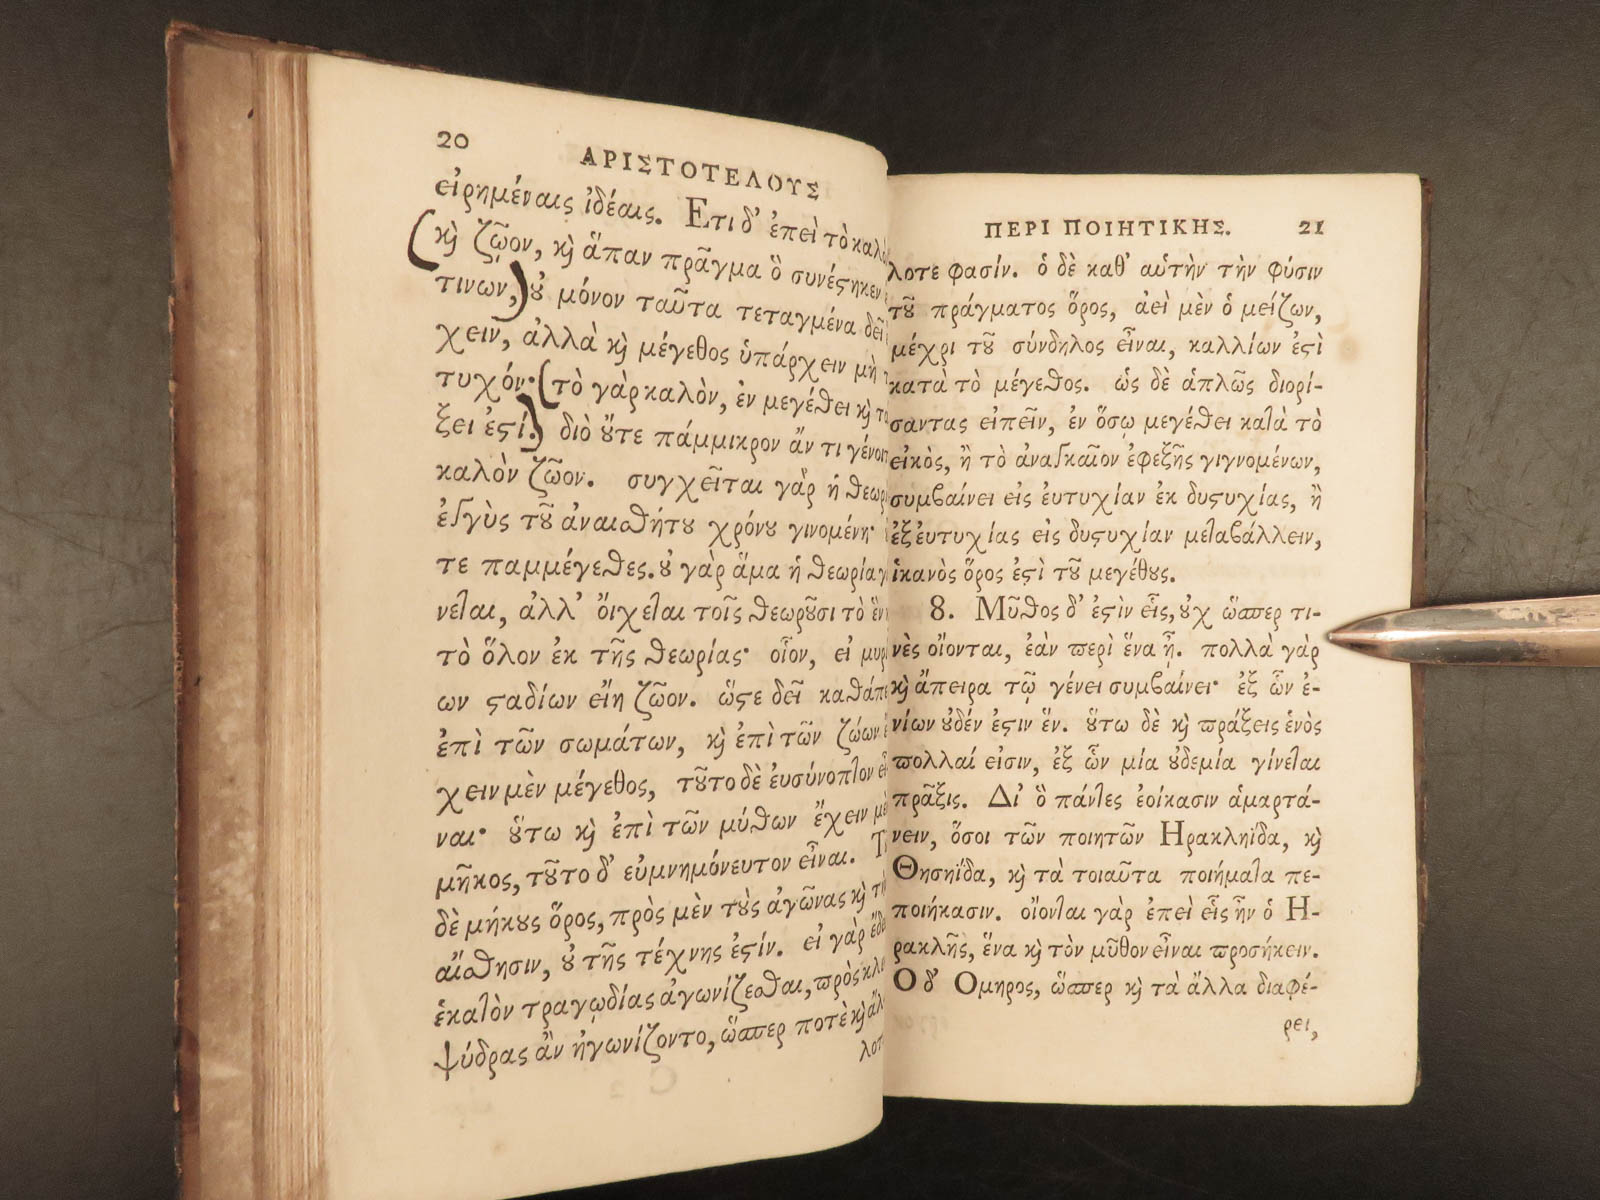 20
ΑΡΙΣΤΟΤΕΛΟΥΣ
εἰρημέναις ἰδέαις. Ετι δ' ἐπεὶ τὸ
(καὶ ζῷον, καὶ ἅπαν πρᾶγμα ὃ συνέστηκεν
τινων,) οὐ μόνον ταῦτα τεταγμένα δεῖ
χειν, ἀλλὰ καὶ μέγεθος ὑπάρχειν μὴ
τυχόν· (τὸ γὰρ καλὸν, ἐν μεγέθει καὶ
ξει ἐστί.) διὸ οὔτε πάμμικρον ἄν τι
καλὸν ζῶον. συγχεῖται γὰρ ἡ
ἐγγὺς τοῦ ἀναισθήτου χρόνου γινομένη·
τε παμμέγεθες. οὐ γὰρ ἅμα ἡ θεωρία
νεται, ἀλλ' ὄιχεται τοῖς θεωροῦσι τὸ
τὸ ὅλον ἐκ τῆς θεωρίας· οἷον, εἰ
ων σταδίων εἴη ζῶον. ὥστε δεῖ
ἐπὶ τῶν σωμάτων, καὶ ἐπὶ τῶν ζώων
χειν μὲν μέγεθος, τοῦτο δὲ ἐυσύνοπτον
ναι· οὕτω καὶ ἐπὶ τῶν μύθων ἔχειν
μῆκος, τοῦτο δ' εὐμνημόνευτον εἶναι.
δὲ μήκους ὅρος, πρὸς μὲν τοὺς ἀγῶνας καὶ
αἴσθησιν, οὐ τῆς τέχνης ἐστίν. εἰ γὰρ
ἑκατὸν τραγῳδίας ἀγωνίζεσθαι, πρὸς
ψύδρας ἂν ἠγωνίζοντο, ὥσπερ ποτὲ καὶ
ΠΕΡΙ ΠΟΙΗΤΙΚΗΣ. 21
λοτε φασίν. ὁ δὲ καθ' αὑτὴν τὴν φύσιν
τοῦ πράγματος ὅρος, ἀεὶ μὲν ὁ μείζων,
μέχρι τοῦ σύνδηλος εἶναι, καλλίων ἐστὶ
κατὰ τὸ μέγεθος. ὡς δὲ ἁπλῶς διορί-
σαντας εἰπεῖν, ἐν ὅσῳ μεγέθει κατὰ τὸ
εἰκὸς, ἢ τὸ ἀναγκαῖον ἐφεξῆς γιγνομένων,
συμβαίνει εἰς ἐυτυχίαν ἐκ δυστυχίας, ἢ
ἐξ ἐυτυχίας εἰς δυστυχίαν μεταβάλλειν,
ἱκανὸς ὅρος ἐστὶ τοῦ μεγέθους.
8. Μῦθος δ' ἐστὶν εἷς, οὐχ ὥσπερ τι-
νὲς οἴονται, ἐὰν περὶ ἕνα ᾖ. πολλὰ γὰρ
καὶ ἄπειρα τῷ γένει συμβαίνει· ἐξ ὧν ἐ-
νίων οὐδέν ἐστιν ἕν. οὕτω δὲ καὶ πράξεις ἑνὸς
πολλαί εἰσιν, ἐξ ὧν μία οὐδεμία γίνεται
πρᾶξις. Δι' ὃ πάντες ἐοίκασιν ἁμαρτά-
νειν, ὅσοι τῶν ποιητῶν Ηρακληΐδα, καὶ
Θησηΐδα, καὶ τὰ τοιαῦτα ποιήματα πε-
ποιήκασιν. οἴονται γὰρ ἐπεὶ εἷς ἦν ὁ Η-
ρακλῆς, ἕνα καὶ τὸν μῦθον εἶναι προσήκειν.
Ο δ' Ομηρος, ὥσπερ καὶ τὰ ἄλλα διαφέ-
ρει,